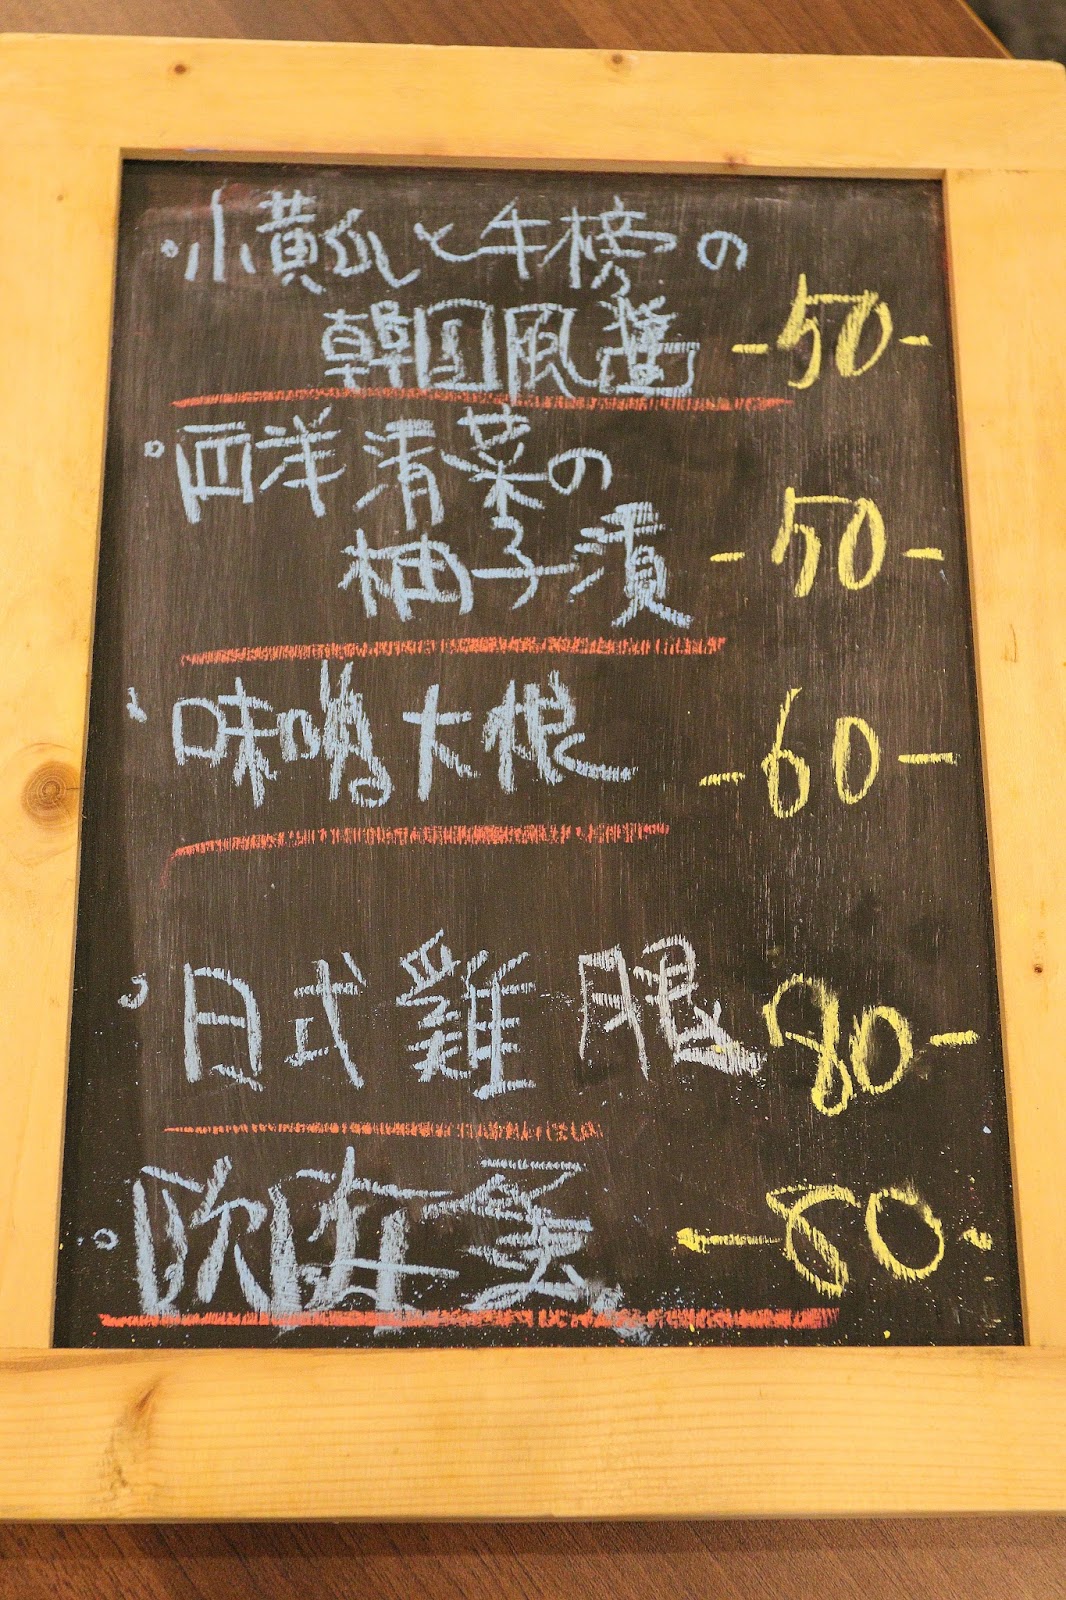 小黄瓜と牛榜の
韓国風醬 -50-
西洋清菜の
柚子漬 -50-
味噌大根 -60-
日式雞腿 80-
軟海